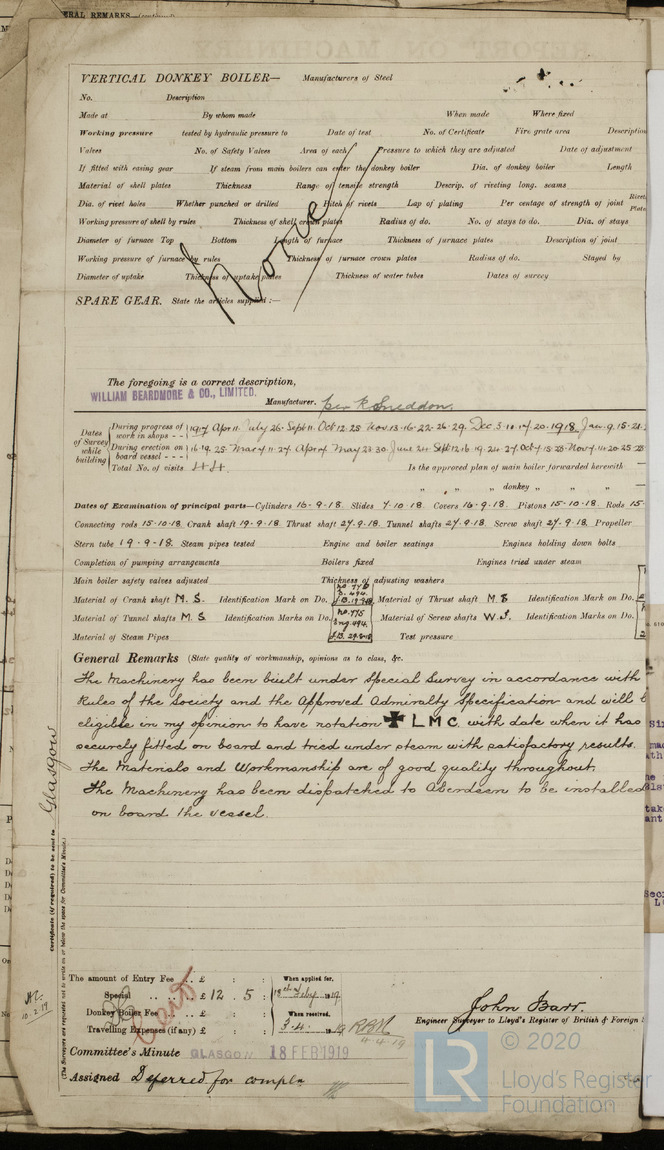 VERTICAL DONKEY BOILER— Manufacturers of Steel
No. Description
Made at By whom made When made Where fixed
Working pressure tested by hydraulic pressure to Date of test No. of Certificate Fire grate area Description
Valves No. of Safety Valves Area of each Pressure to which they are adjusted Date of adjustment
If fitted with easing gear If steam from main boilers can enter the donkey boiler Dia. of donkey boiler Length
Material of shell plates Thickness Range of tensile strength Descrip. of riveting long. seams
Dia. of rivet holes Whether punched or drilled Pitch of rivets Lap of plating Per centage of strength of joint Rivets
Plates
Working pressure of shell by rules Thickness of shell crown plates Radius of do. No. of stays to do. Dia. of stays
Diameter of furnace Top Bottom Length of furnace Thickness of furnace plates Description of joint
Working pressure of furnace by rules Thickness of furnace crown plates Radius of do. Stayed by
Diameter of uptake Thickness of uptake plates Thickness of water tubes Dates of survey
None
SPARE GEAR. State the articles supplied :—
The foregoing is a correct description,
WILLIAM BEARDMORE & CO., LIMITED.
Manufacturer. per R Sneddon.
Dates of Survey while building
During progress of work in shops - - 1917 Apr 11. July 26. Sept 11. Oct 12. 25 Nov. 13. 16. 22. 26. 29. Dec 3. 10. 14 20. 1918. Jan. 9. 15. 21.
During erection on board vessel - - - 16. 19. 25 Mar 11. 27 Apr 4 May 23. 30 June 24 Sept 12. 16. 19. 24. 27 Oct 7. 15. 23. Nov 4. 20. 25. 28
Total No. of visits 44. Is the approved plan of main boiler forwarded herewith
" " " donkey " "
Dates of Examination of principal parts—Cylinders 16-9-18. Slides 7.10-18. Covers 16.9-18. Pistons 15-10-18. Rods 15-
Connecting rods 15-10-18 Crank shaft 19-9-18. Thrust shaft 27.9-18. Tunnel shafts 27.9-18. Screw shaft 27-9-18. Propeller
Stern tube 19.9-18. Steam pipes tested Engine and boiler seatings Engines holding down bolts
Completion of pumping arrangements Boilers fixed Engines tried under steam
Main boiler safety valves adjusted Thickness of adjusting washers
Material of Crank shaft M.S. Identification Mark on Do. Material of Thrust shaft M S Identification Mark on Do.
Material of Tunnel shafts M.S. Identification Marks on Do. No. 775 Eng. 494. Material of Screw shafts W.I. Identification Marks on Do.
Material of Steam Pipes Test pressure
General Remarks (State quality of workmanship, opinions as to class, &c.
The Machinery has been built under Special Survey in accordance with
Rules of the Society and the Approved Admiralty Specification and will b
eligible in my opinion to have notation ✠ L M C. with date when it has
securely fitted on board and tried under steam with satisfactory results.
The Materials and Workmanship are of good quality throughout.
The Machinery has been dispatched to Aberdeen to be installed
on board the vessel.
Glasgow
Certificate (if required) to be sent to
(The Surveyors are requested not to write on or below the space for Committee's Minute.)
The amount of Entry Fee .. £ : : When applied for,
Special .. .. £ 12 . 5 : 13th Feby 1919
Donkey Boiler Fee .. .. £ : : When received,
Travelling Expenses (if any) £ : : 3.4. 19
4-4-19
10.2.19
John Barr.
Engineer Surveyor to Lloyd's Register of British & Foreign S
Committee's Minute GLASGOW. 18 FEB 1919
Assigned Deferred for compln
LR
© 2020
Lloyd's Register
Foundation